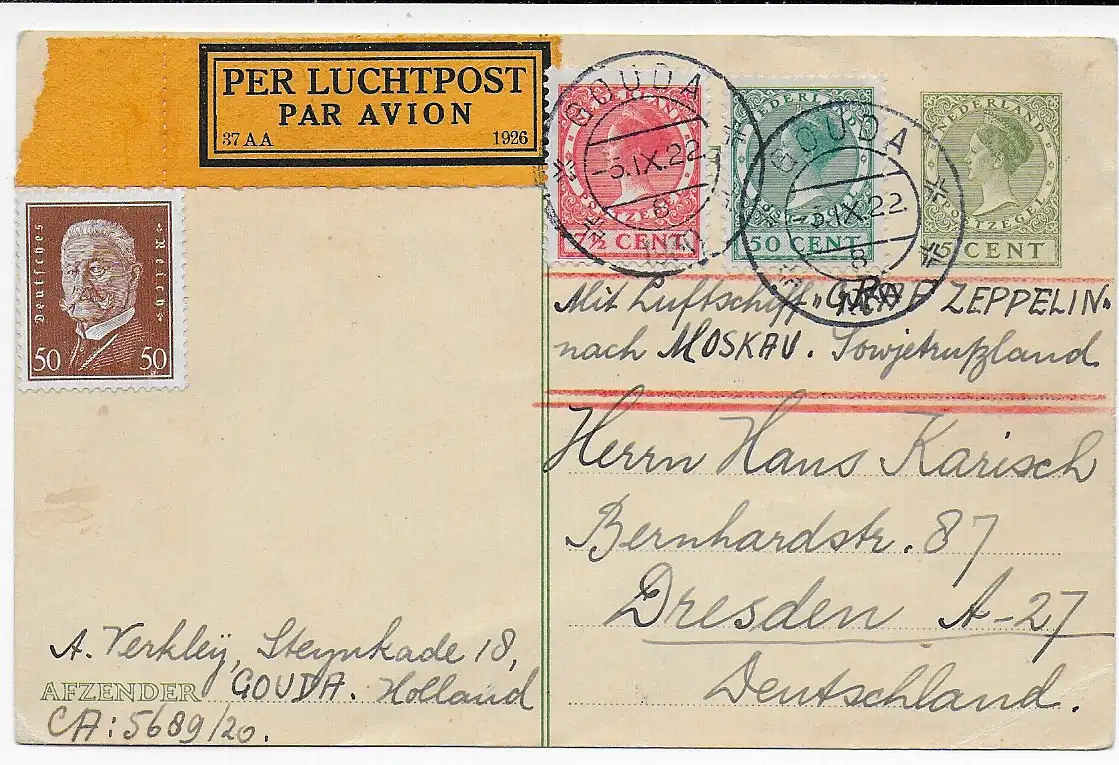 PER LUCHTPOST
PAR AVION
37 AA 1926
Deutsches Reich
50 50
NEDERLAND
POSTZEGEL
7½ CENT
NEDERLAND
POSTZEGEL
50 CENT
NEDERLAND
POSTZEGEL
5 CENT
GOUDA
5.IX.22
8
GOUDA
5.IX.22
8
Mit Luftschiff „GRAF ZEPPELIN"
nach MOSKAU. Sowjetrußland
Herrn Hans Karisch
Bernhardstr. 87
Dresden A-27
Deutschland.
A. Verkleÿ, Steynkade 18,
AFZENDER GOUDA. Holland
CA: 5689/20.